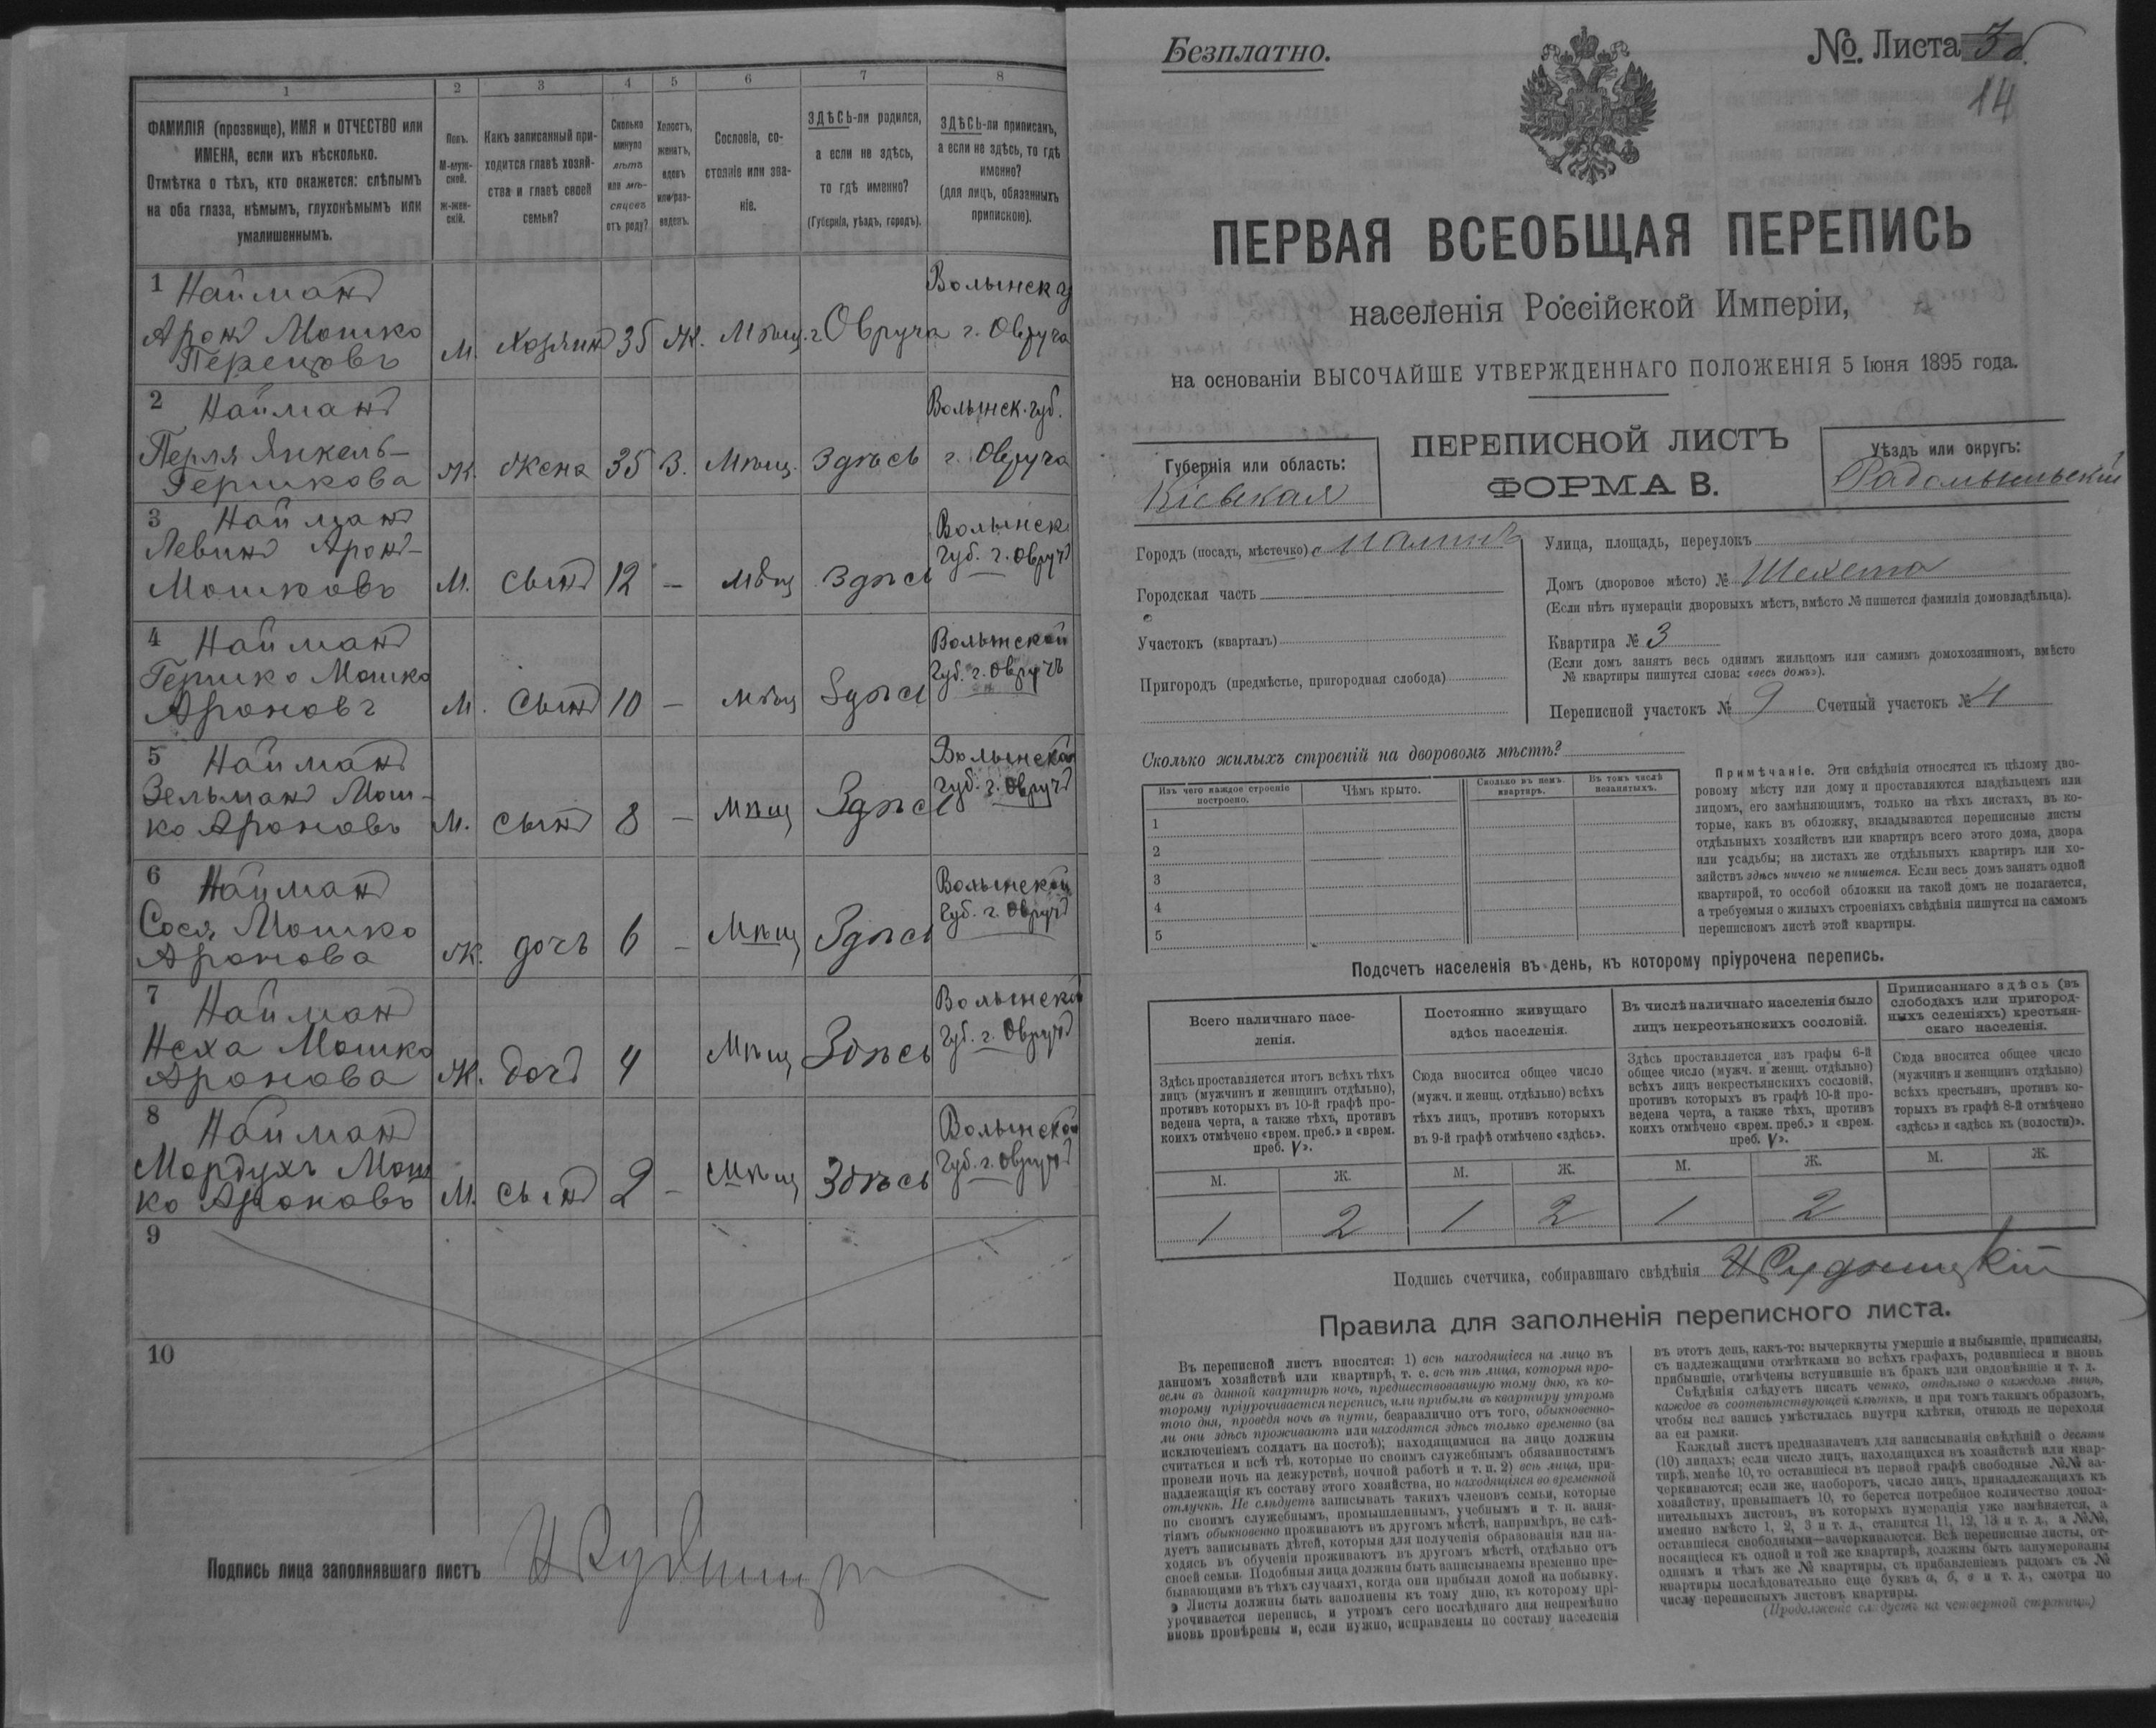 1 2 3 4 5 6 7 8
ФАМИЛІЯ (прозвище), ИМЯ и ОТЧЕСТВО или
ИМЕНА, если ихъ нѣсколько.
Отмѣтка о тѣхъ, кто окажется: слѣпымъ
на оба глаза, нѣмымъ, глухонѣмымъ или
умалишеннымъ.
Полъ.
М-муж-
ской.
Ж-жен-
скій.
Какъ записанный при-
ходится главѣ хозяй-
ства и главѣ своей
семьи?
Сколько
минуло
лѣтъ
или мѣ-
сяцевъ
отъ роду?
Холостъ,
женатъ,
вдовъ
или раз-
веденъ.
Сословіе, со-
стояніе или зва-
ніе.
ЗДѢСЬ-ли родился,
а если не здѣсь,
то гдѣ именно?
(Губернія, уѣздъ, городъ).
ЗДѢСЬ-ли приписанъ,
а если не здѣсь, то гдѣ
именно?
(для лицъ, обязанныхъ
припискою).
1 Найманъ
Аронъ Мошко
Перецовъ
М. Хозяинъ 35 Ж. Мѣщ. г. Овруча
Волынск
г. Овруча
2 Найманъ
Перля Янкель-
Гершкова
Ж. Жена 35 З. Мѣщ. Здѣсь
Волынск. губ.
г. Овруча
3 Найманъ
Левинъ Аронъ-
Мошковъ
М. сынъ 12 – мѣщ Здѣсь
Волынск.
губ. г. Овручъ
4 Найманъ
Гершко Мошко
Ароновъ
М. Сынъ 10 – мѣщ Здѣсь
Волынской
губ. г. Овручъ
5 Найманъ
Зельманъ Мош-
ко Ароновъ
М. сынъ 8 – Мѣщ Здѣсь
Волынской
губ. г. Овручъ
6 Найманъ
Сося Мошко
Аронова
Ж. дочь 6 – Мѣщ Здѣсь
Волынской
губ. г. Овручъ
7 Найманъ
Неха Мошко
Аронова
Ж. дочъ 4 Мѣщ Здѣсь
Волынской
губ. г. Овручъ
8 Найманъ
Мордухъ Мош
ко Ароновъ
М. сынъ 2 – Мѣщ Здѣсь
Волынской
губ. г. Овручъ
9
10
Подпись лица заполнявшаго листъ
Безплатно.
№. Листа
14
ПЕРВАЯ ВСЕОБЩАЯ ПЕРЕПИСЬ
населенія Россійской Имперіи,
на основаніи ВЫСОЧАЙШЕ УТВЕРЖДЕННАГО ПОЛОЖЕНІЯ 5 Іюня 1895 года.
Губернія или область:
Кіевская
ПЕРЕПИСНОЙ ЛИСТЪ
ФОРМА В.
Уѣздъ или округъ:
Радомысльскій
Городъ (посадъ, мѣстечко)
Городская часть
Участокъ (кварталъ)
Пригородъ (предмѣстье, пригородная слобода)
Улица, площадь, переулокъ
Домъ (дворовое мѣсто) №
(Если нѣтъ нумераціи дворовыхъ мѣстъ, вмѣсто № пишется фамилія домовладѣльца).
Квартира № 3
(Если домъ занятъ весь однимъ жильцомъ или самимъ домохозяиномъ, вмѣсто
№ квартиры пишутся слова: «весь домъ»).
Переписной участокъ № 9 Счетный участокъ № 4
Сколько жилыхъ строеній на дворовомъ мѣстѣ?
Изъ чего каждое строеніе
построено.
Чѣмъ крыто.
Сколько въ немъ
квартиръ.
Въ томъ числѣ
незанятыхъ.
1
2
3
4
5
Примѣчаніе. Эти свѣдѣнія относятся къ цѣлому дво-
ровому мѣсту или дому и проставляются владѣльцемъ или
лицомъ, его замѣняющимъ, только на тѣхъ листахъ, въ ко-
торые, какъ въ обложку, вкладываются переписные листы
отдѣльныхъ хозяйствъ или квартиръ всего этого дома, двора
или усадьбы; на листахъ же отдѣльныхъ квартиръ или хо-
зяйствъ здѣсь ничего не пишется. Если весь домъ занятъ одной
квартирой, то особой обложки на такой домъ не полагается,
а требуемыя о жилыхъ строеніяхъ свѣдѣнія пишутся на самомъ
переписномъ листѣ этой квартиры.
Подсчетъ населенія въ день, къ которому пріурочена перепись.
Всего наличнаго насе-
ленія.
Здѣсь проставляется итогъ всѣхъ тѣхъ
лицъ (мужчинъ и женщинъ отдѣльно),
противъ которыхъ въ 10-й графѣ про-
ведена черта, а также тѣхъ, противъ
коихъ отмѣчено «врем. преб.» и «врем.
преб. V».
Постоянно живущаго
здѣсь населенія.
Сюда вносится общее число
(мужч. и женщ. отдѣльно) всѣхъ
тѣхъ лицъ, противъ которыхъ
въ 9-й графѣ отмѣчено «здѣсь».
Въ числѣ наличнаго населенія было
лицъ некрестьянскихъ сословій.
Здѣсь проставляется изъ графы 6-й
общее число (мужч. и женщ. отдѣльно)
всѣхъ лицъ некрестьянскихъ сословій,
противъ которыхъ въ графѣ 10-й про-
ведена черта, а также тѣхъ, противъ
коихъ отмѣчено «врем. преб.» и «врем.
преб. V».
Приписаннаго здѣсь (въ
слободахъ или пригород-
ныхъ селеніяхъ) крестьян-
скаго населенія.
Сюда вносится общее число
(мужчинъ и женщинъ отдѣльно)
всѣхъ крестьянъ, противъ ко-
торыхъ въ графѣ 8-й отмѣчено
«здѣсь» и «здѣсь къ (волости)».
М. Ж. М. Ж. М. Ж. М. Ж.
1 2 1 2 1 2
Подпись счетчика, собиравшаго свѣдѣнія
Правила для заполненія переписного листа.
Въ переписной листъ вносятся: 1) всѣ находящіеся на лицо въ
данномъ хозяйствѣ или квартирѣ, т. е. всѣ тѣ лица, которыя про-
вели въ данной квартирѣ ночь, предшествовавшую тому дню, къ ко-
торому пріурочивается перепись, или прибыли въ квартиру утромъ
того дня, проведя ночь въ пути, безразлично отъ того, обыкновенно-
ли они здѣсь проживаютъ или находятся здѣсь только временно (за
исключеніемъ солдатъ на постоѣ); находящимися на лицо должны
считаться и всѣ тѣ, которые по своимъ служебнымъ обязанностямъ
провели ночь на дежурствѣ, ночной работѣ и т. п. 2) всѣ лица, при-
надлежащія къ составу этого хозяйства, но находящіяся во временной
отлучкѣ. Не слѣдуетъ записывать такихъ членовъ семьи, которые
по своимъ служебнымъ, промышленнымъ, учебнымъ и т. п. заня-
тіямъ обыкновенно проживаютъ въ другомъ мѣстѣ, напримѣръ, не слѣ-
дуетъ записывать дѣтей, которыя для полученія образованія или на-
ходясь въ обученіи проживаютъ въ другомъ мѣстѣ, отдѣльно отъ
своей семьи. Подобныя лица должны быть записываемы временно пре-
бывающими въ тѣхъ случаяхъ, когда они прибыли домой на побывку.
Листы должны быть заполнены къ тому дню, къ которому прі-
урочивается перепись, и утромъ сего послѣдняго дня непремѣнно
вновь провѣрены и, если нужно, исправлены по составу населенія
въ этотъ день, какъ-то: вычеркнуты умершіе и выбывшіе, приписаны,
съ надлежащими отмѣтками во всѣхъ графахъ, родившіеся и вновь
прибывшіе, отмѣчены вступившіе въ бракъ или овдовѣвшіе и т. д.
Свѣдѣнія слѣдуетъ писать четко, отдѣльно о каждомъ лицѣ,
каждое въ соотвѣтствующей клѣткѣ, и при томъ такимъ образомъ,
чтобы вся запись умѣстилась внутри клѣтки, отнюдь не переходя
за ея рамки.
Каждый листъ предназначенъ для записыванія свѣдѣній о десяти
(10) лицахъ; если число лицъ, находящихся въ хозяйствѣ или квар-
тирѣ, менѣе 10, то оставшіеся въ первой графѣ свободные №№ за-
черкиваются; если же, наоборотъ, число лицъ, принадлежащихъ къ
хозяйству, превышаетъ 10, то берется потребное количество допол-
нительныхъ листовъ, въ которыхъ нумерація уже измѣняется, а
именно вмѣсто 1, 2, 3 и т. д., ставится 11, 12, 13 и т. д., а №№,
оставшіеся свободными—зачеркиваются. Всѣ переписные листы, от-
носящіеся къ одной и той же квартирѣ, должны быть занумерованы
однимъ и тѣмъ же № квартиры, съ прибавленіемъ рядомъ съ №
квартиры послѣдовательно еще буквъ а, б, в и т. д., смотря по
числу переписныхъ листовъ квартиры.
(Продолженіе слѣдуетъ на четвертой страницѣ)